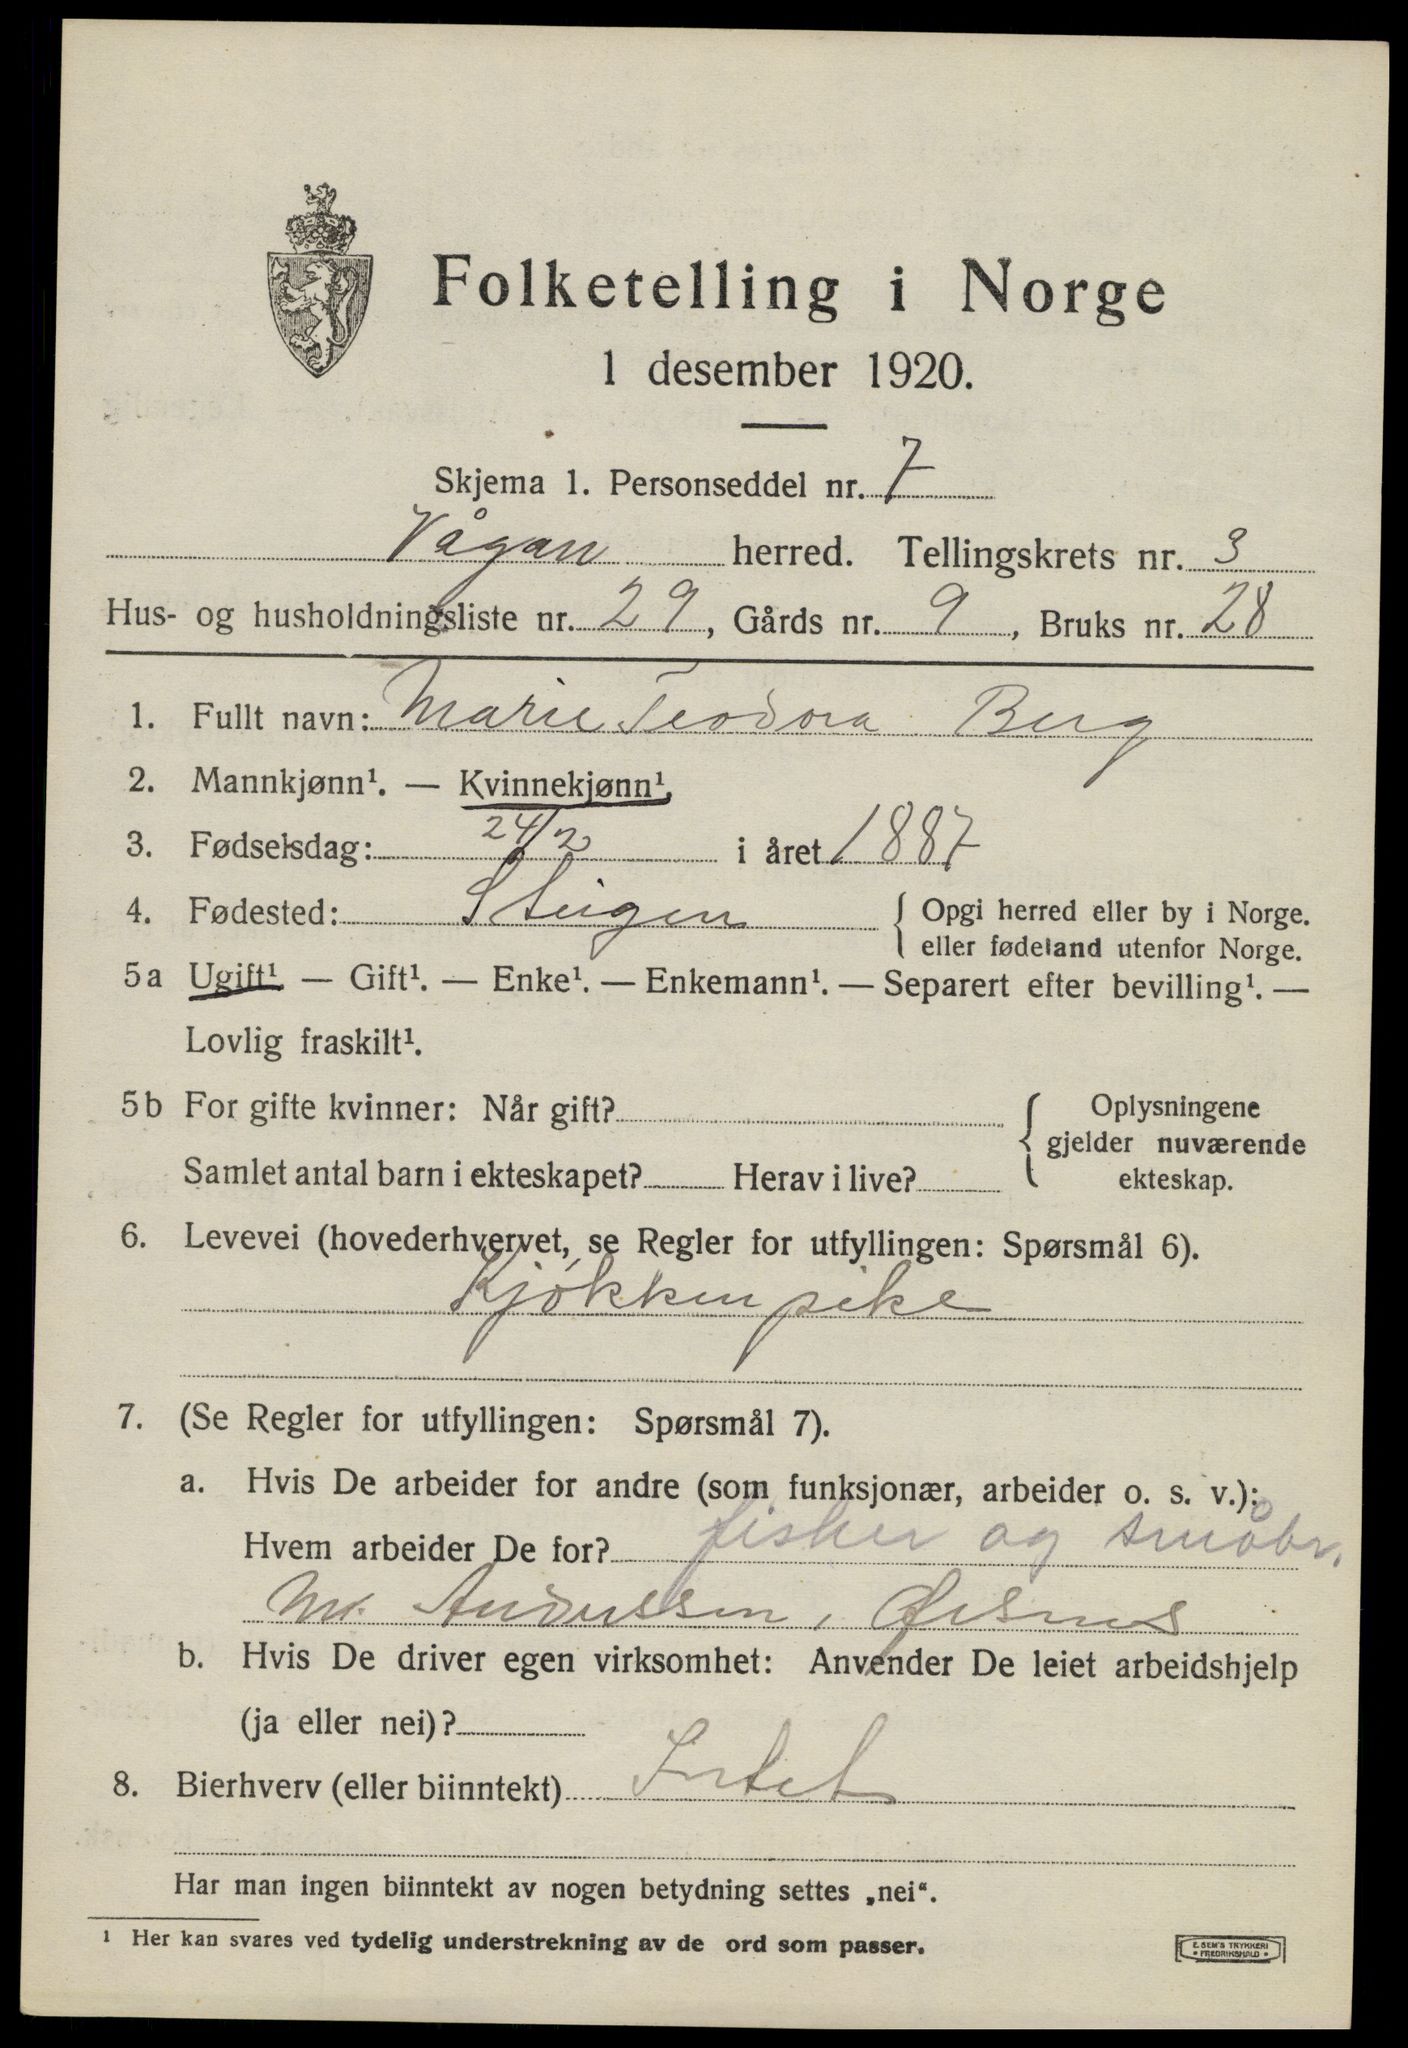 Folketelling i Norge
1 desember 1920.
Skjema 1. Personseddel nr. 7
Vågan herred. Tellingskrets nr. 3
Hus- og husholdningsliste nr. 29, Gårds nr. 9, Bruks nr. 28
1. Fullt navn: Marie Teodora Berg
2. Mannkjønn¹. — Kvinnekjønn¹.
3. Fødselsdag: 24/2 i året 1887
4. Fødested: Steigen { Opgi herred eller by i Norge.
eller fødeland utenfor Norge.
5a Ugift¹. — Gift¹. — Enke¹. — Enkemann¹. — Separert efter bevilling¹. —
Lovlig fraskilt¹.
5b For gifte kvinner: Når gift? { Oplysningene
gjelder nuværende
Samlet antal barn i ekteskapet? Herav i live? ekteskap.
6. Levevei (hovederhvervet, se Regler for utfyllingen: Spørsmål 6).
Kjøkkenpike
7. (Se Regler for utfyllingen: Spørsmål 7).
a. Hvis De arbeider for andre (som funksjonær, arbeider o. s. v.):
Hvem arbeider De for? fisker og småbr.
M. Anderssen, Ørsnes
b. Hvis De driver egen virksomhet: Anvender De leiet arbeidshjelp
(ja eller nei)?
8. Bierhverv (eller biinntekt) Intet
Har man ingen biinntekt av nogen betydning settes „nei“.
¹ Her kan svares ved tydelig understrekning av de ord som passer.
E. SEM'S TRYKKERI
FREDRIKSHALD